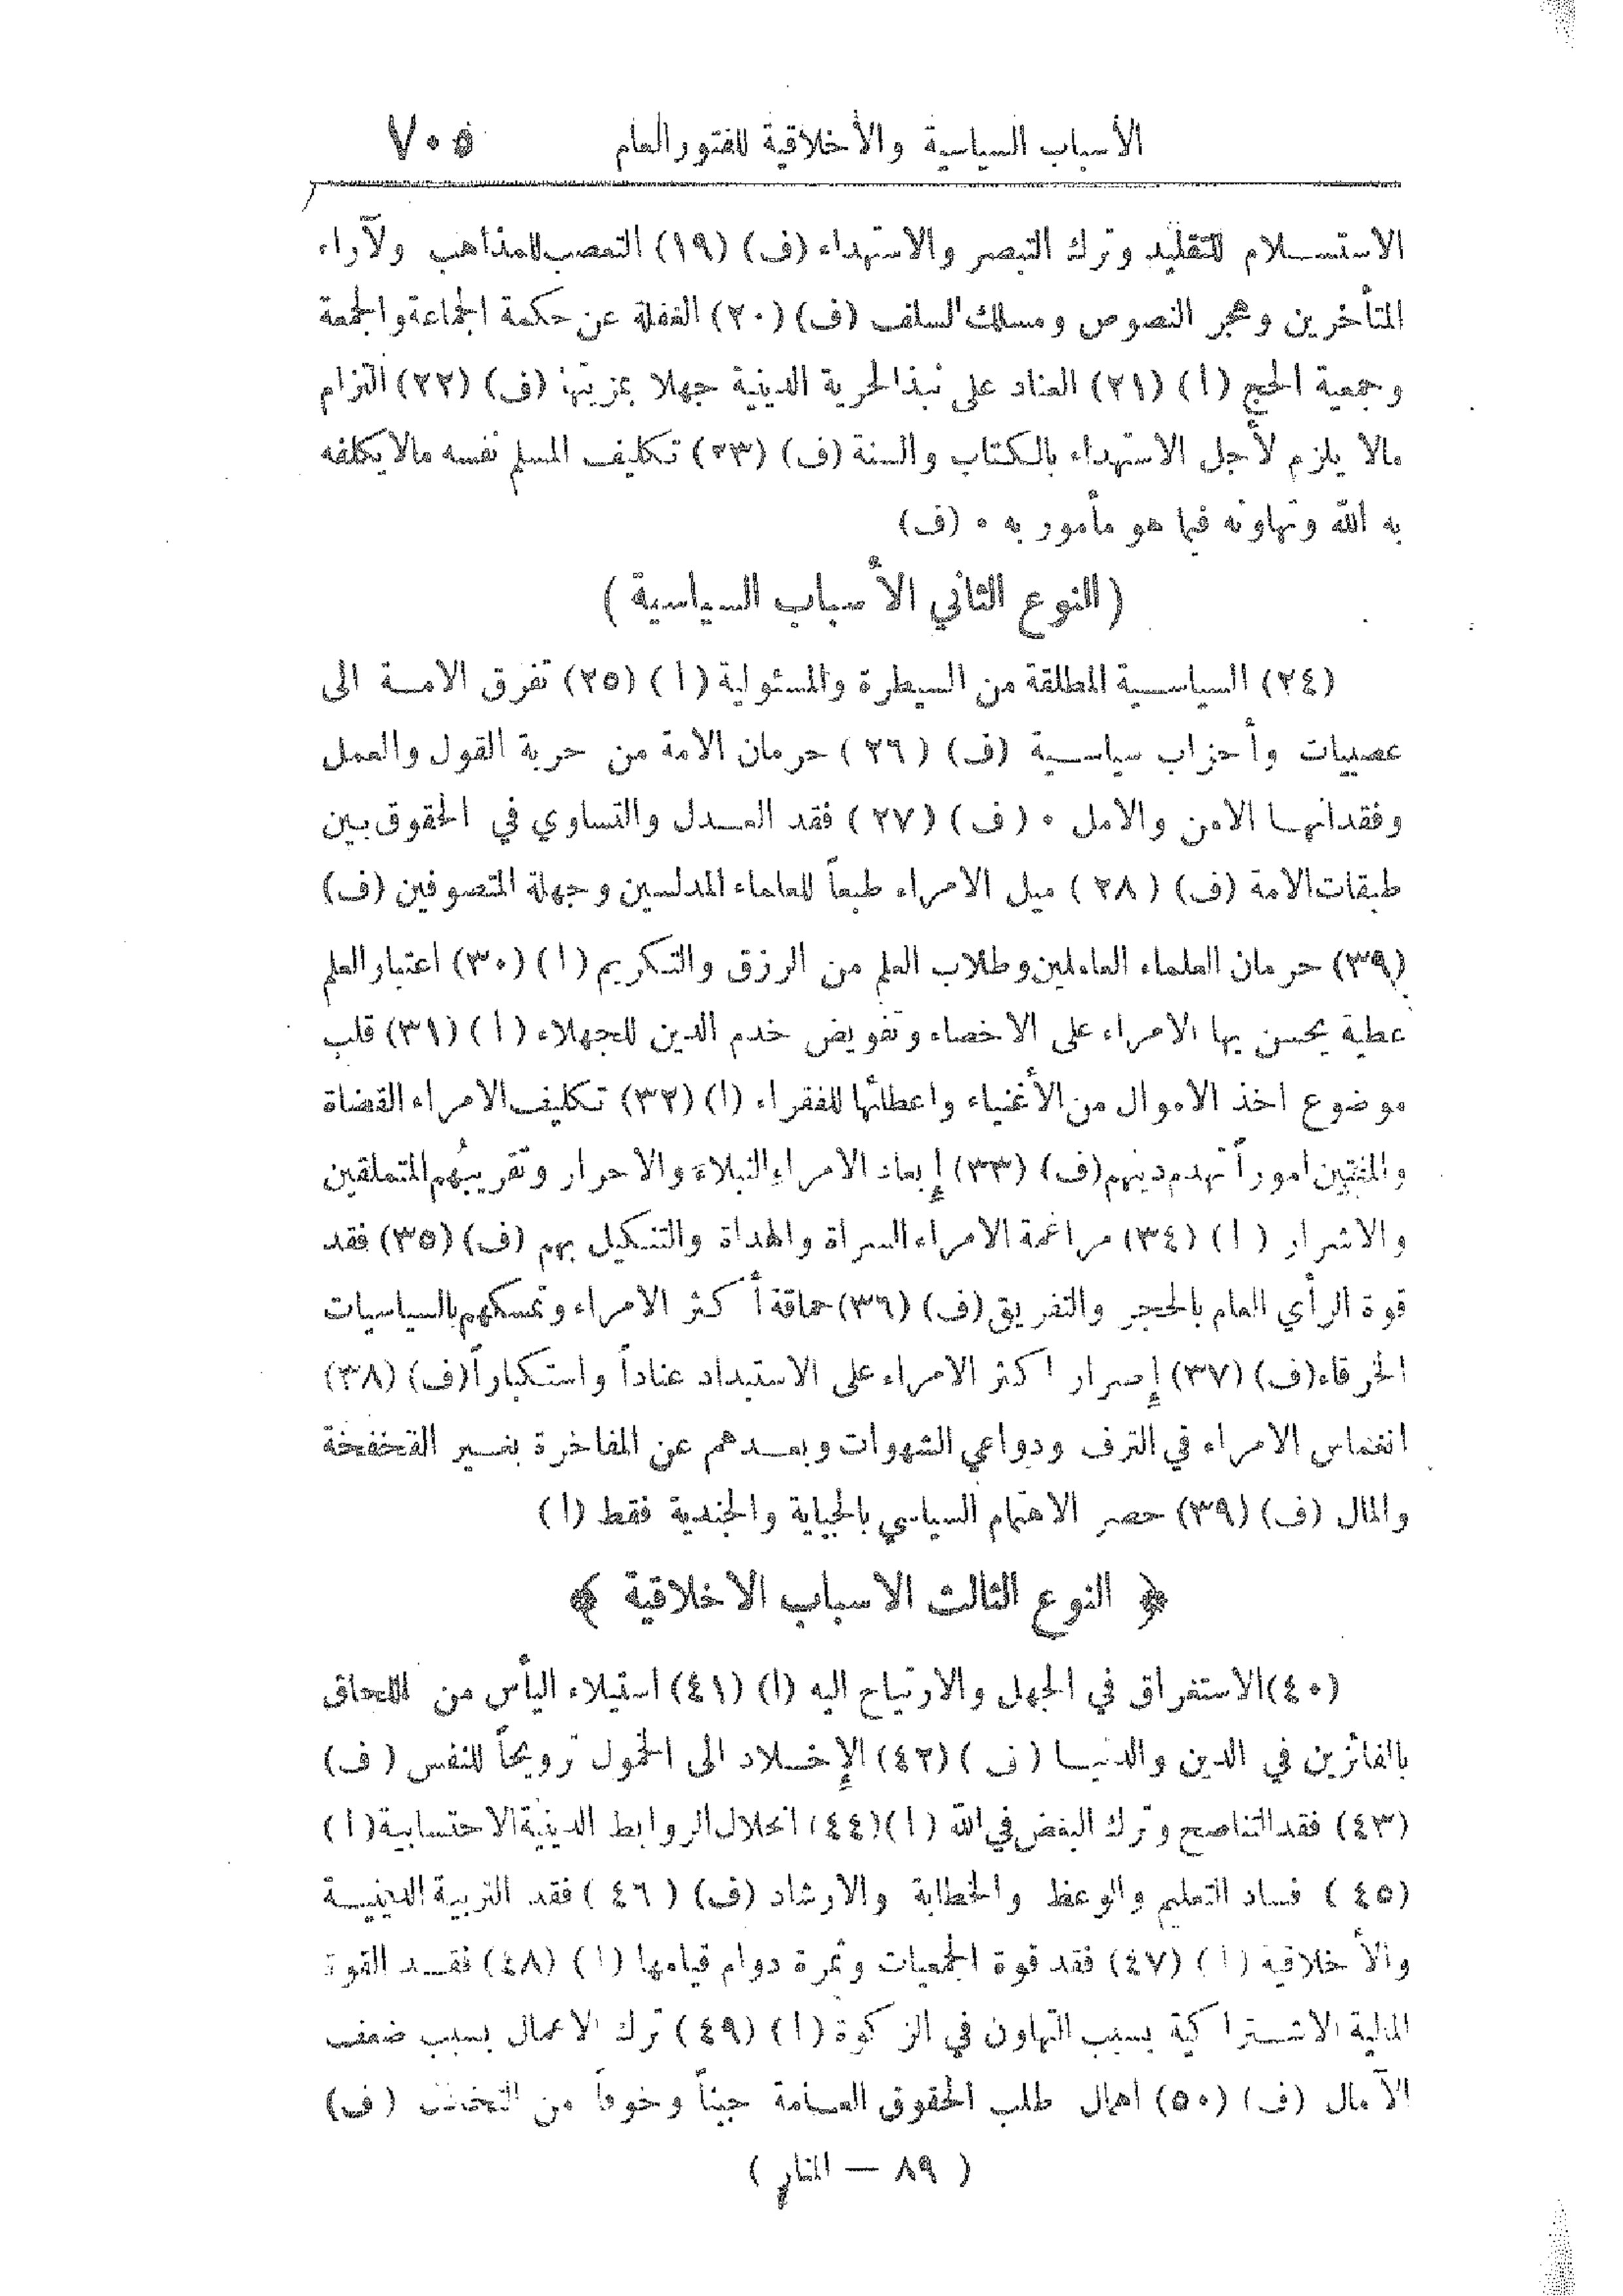 الأسباب السياسية والأخلاقية للفتور العام ٧٠٥
الاستسلام للتقليد وترك التبصر والاستهداء (ف) (١٩) التعصب للمذاهب ولآراء
المتأخرين وهجر النصوص ومسلك السلف (ف) (٢٠) الغفلة عن حكمة الجماعة والجمعة
وجمعية الحج (ا) (٢١) العناد على نبذ الحرية الدينية جهلا بمزيتها (ف) (٢٢) التزام
مالا يلزم لأجل الاستهداء بالكتاب والسنة (ف) (٢٣) تكليف المسلم نفسه مالا يكلفه
به الله وتهاونه فيما هو مأمور به ٠ (ف)
(النوع الثاني الأسباب السياسية)
(٢٤) السياسية المطلقة من السيطرة والمسئولية (ا) (٢٥) تفرق الامة الى
عصبيات وأحزاب سياسية (ف) (٢٦) حرمان الامة من حرية القول والعمل
وفقدانها الامن والامل ٠ (ف) (٢٧) فقد العدل والتساوي في الحقوق بين
طبقات الامة (ف) (٢٨) ميل الامراء طبعاً للعلماء المدلسين وجهلة المتصوفين (ف)
(٣٩) حرمان العلماء العاملين وطلاب العلم من الرزق والتكريم (ا) (٣٠) اعتبار العلم
عطية يحسن بها الامراء على الاخصاء وتفويض خدم الدين للجهلاء (ا) (٣١) قلب
موضوع اخذ الاموال من الأغنياء واعطائها للفقراء (ا) (٣٢) تكليف الامراء القضاة
والمفتين اموراً تهدم دينهم (ف) (٣٣) إبعاد الامراء النبلاء والاحرار وتقريبهم المتملقين
والاشرار (ا) (٣٤) مراغمة الامراء السراة والهداة والتنكيل بهم (ف) (٣٥) فقد
قوة الرأي العام بالحجر والتفريق (ف) (٣٦) حماقة أكثر الامراء وتمسكهم بالسياسيات
الخرقاء (ف) (٣٧) إصرار اكثر الامراء على الاستبداد عناداً واستكباراً (ف) (٣٨)
انغماس الامراء في الترف ودواعي الشهوات وبعدهم عن المفاخرة بغير الفخفخة
والمال (ف) (٣٩) حصر الاهتمام السياسي بالجباية والجندية فقط (ا)
﴿ النوع الثالث الاسباب الاخلاقية ﴾
(٤٠) الاستغراق في الجهل والارتياح اليه (ا) (٤١) استيلاء اليأس من اللحاق
بالفائزين في الدين والدنيا (ف) (٤٢) الإخلاد الى الخمول ترويحاً للنفس (ف)
(٤٣) فقد التناصح وترك البغض في الله (ا) (٤٤) انحلال الروابط الدينية الاحتسابية (ا)
(٤٥) فساد التعليم والوعظ والخطابة والارشاد (ف) (٤٦) فقد التربية الدينية
والأخلاقية (ا) (٤٧) فقد قوة الجمعيات وثمرة دوام قيامها (ا) (٤٨) فقد القوة
المالية الاشتراكية بسبب التهاون في الزكوة (ا) (٤٩) ترك الاعمال بسبب ضعف
الآمال (ف) (٥٠) اهمال طلب الحقوق العامة جبناً وخوفاً من (ف)
(٨٩ — المنار)